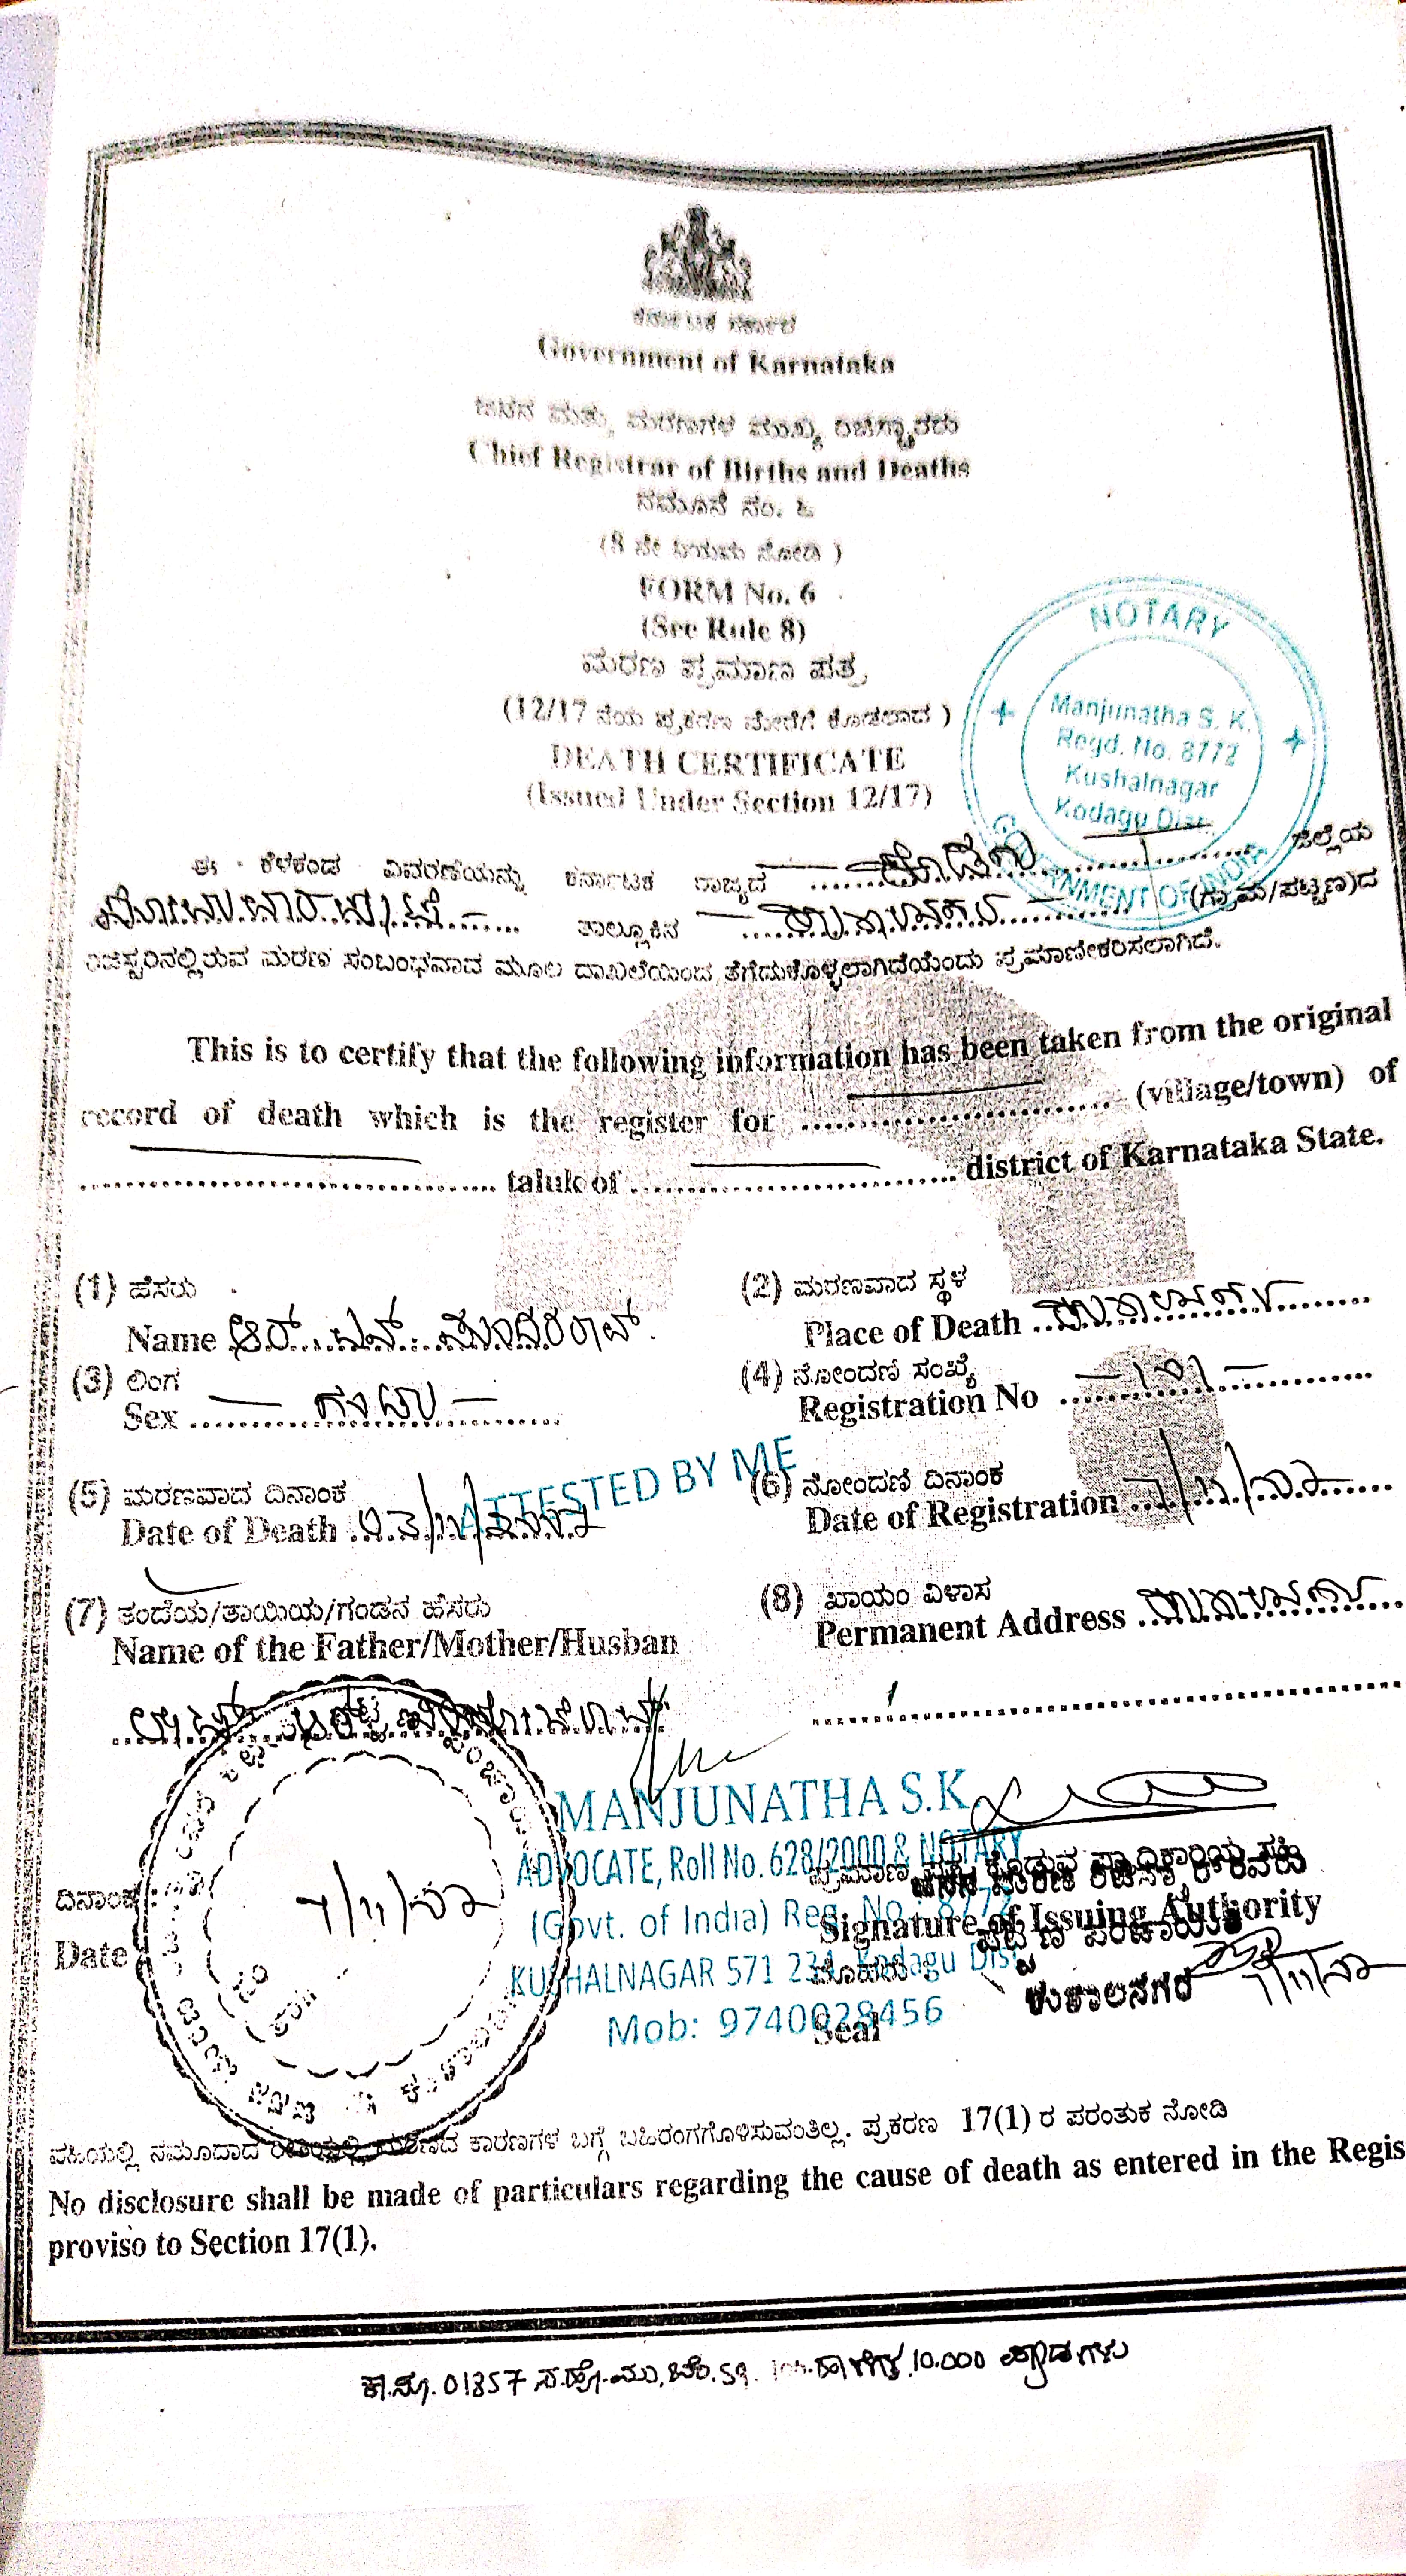 ಕರ್ನಾಟಕ ಸರ್ಕಾರ
Government of Karnataka
ಜನನ ಮತ್ತು ಮರಣಗಳ ಮುಖ್ಯ ರಿಜಿಸ್ಟ್ರಾರರು
Chief Registrar of Births and Deaths
ನಮೂನೆ ಸಂ. ೬
(8 ನೇ ನಿಯಮ ನೋಡಿ )
FORM No. 6
(See Rule 8)
ಮರಣ ಪ್ರಮಾಣ ಪತ್ರ
(12/17 ನೆಯ ಪ್ರಕರಣ ಮೇರೆಗೆ ಕೊಡಲಾದ )
DEATH CERTIFICATE
(Issued Under Section 12/17)
NOTARY
Manjunatha S. K.
Regd. No. 8772
Kushalnagar
Kodagu Dist.
GOVERNMENT OF INDIA
ಈ ಕೆಳಕಂಡ ವಿವರಣೆಯನ್ನು ಕರ್ನಾಟಕ ರಾಜ್ಯದ ಕೊಡಗು ಜಿಲ್ಲೆಯ
ಸೋಮವಾರಪೇಟೆ ತಾಲ್ಲೂಕಿನ ಕುಶಾಲನಗರ (ಗ್ರಾಮ/ಪಟ್ಟಣ)ದ
ರಿಜಿಸ್ಟರಿನಲ್ಲಿರುವ ಮರಣ ಸಂಬಂಧವಾದ ಮೂಲ ದಾಖಲೆಯಿಂದ ತೆಗೆದುಕೊಳ್ಳಲಾಗಿದೆಯೆಂದು ಪ್ರಮಾಣೀಕರಿಸಲಾಗಿದೆ.
This is to certify that the following information has been taken from the original
record of death which is the register for (village/town) of
taluk of district of Karnataka State.
(1) ಹೆಸರು (2) ಮರಣವಾದ ಸ್ಥಳ
Name ಆರ್. ಎನ್. ಸುಂದರರಾವ್. Place of Death ಕುಶಾಲನಗರ
(3) ಲಿಂಗ (4) ನೋಂದಣಿ ಸಂಖ್ಯೆ
Sex ಗಂಡು Registration No
(5) ಮರಣವಾದ ದಿನಾಂಕ (6) ನೋಂದಣಿ ದಿನಾಂಕ
Date of Death Date of Registration
ATTESTED BY ME
(7) ತಂದೆಯ/ತಾಯಿಯ/ಗಂಡನ ಹೆಸರು (8) ಖಾಯಂ ವಿಳಾಸ
Name of the Father/Mother/Husban Permanent Address ಕುಶಾಲನಗರ
MANJUNATHA S.K
ADVOCATE, Roll No. 628/2000 & NOTARY
(Govt. of India) Reg. No. 8772
KUSHALNAGAR 571 234, Kodagu Dist
Mob: 9740028456
ಪ್ರಮಾಣ ಪತ್ರ ಕೊಡುವ ಪ್ರಾಧಿಕಾರಿಯ ಸಹಿ
Signature of Issuing Authority
ಪಟ್ಟಣ ಪಂಚಾಯಿತಿ
ಕುಶಾಲನಗರ
ಮೊಹರು
Seal
ದಿನಾಂಕ
Date
ವಹಿಯಲ್ಲಿ ನಮೂದಾದ ರೀತಿಯಲ್ಲಿ ಮರಣದ ಕಾರಣಗಳ ಬಗ್ಗೆ ಬಹಿರಂಗಗೊಳಿಸುವಂತಿಲ್ಲ. ಪ್ರಕರಣ 17(1) ರ ಪರಂತುಕ ನೋಡಿ
No disclosure shall be made of particulars regarding the cause of death as entered in the Regis
proviso to Section 17(1).